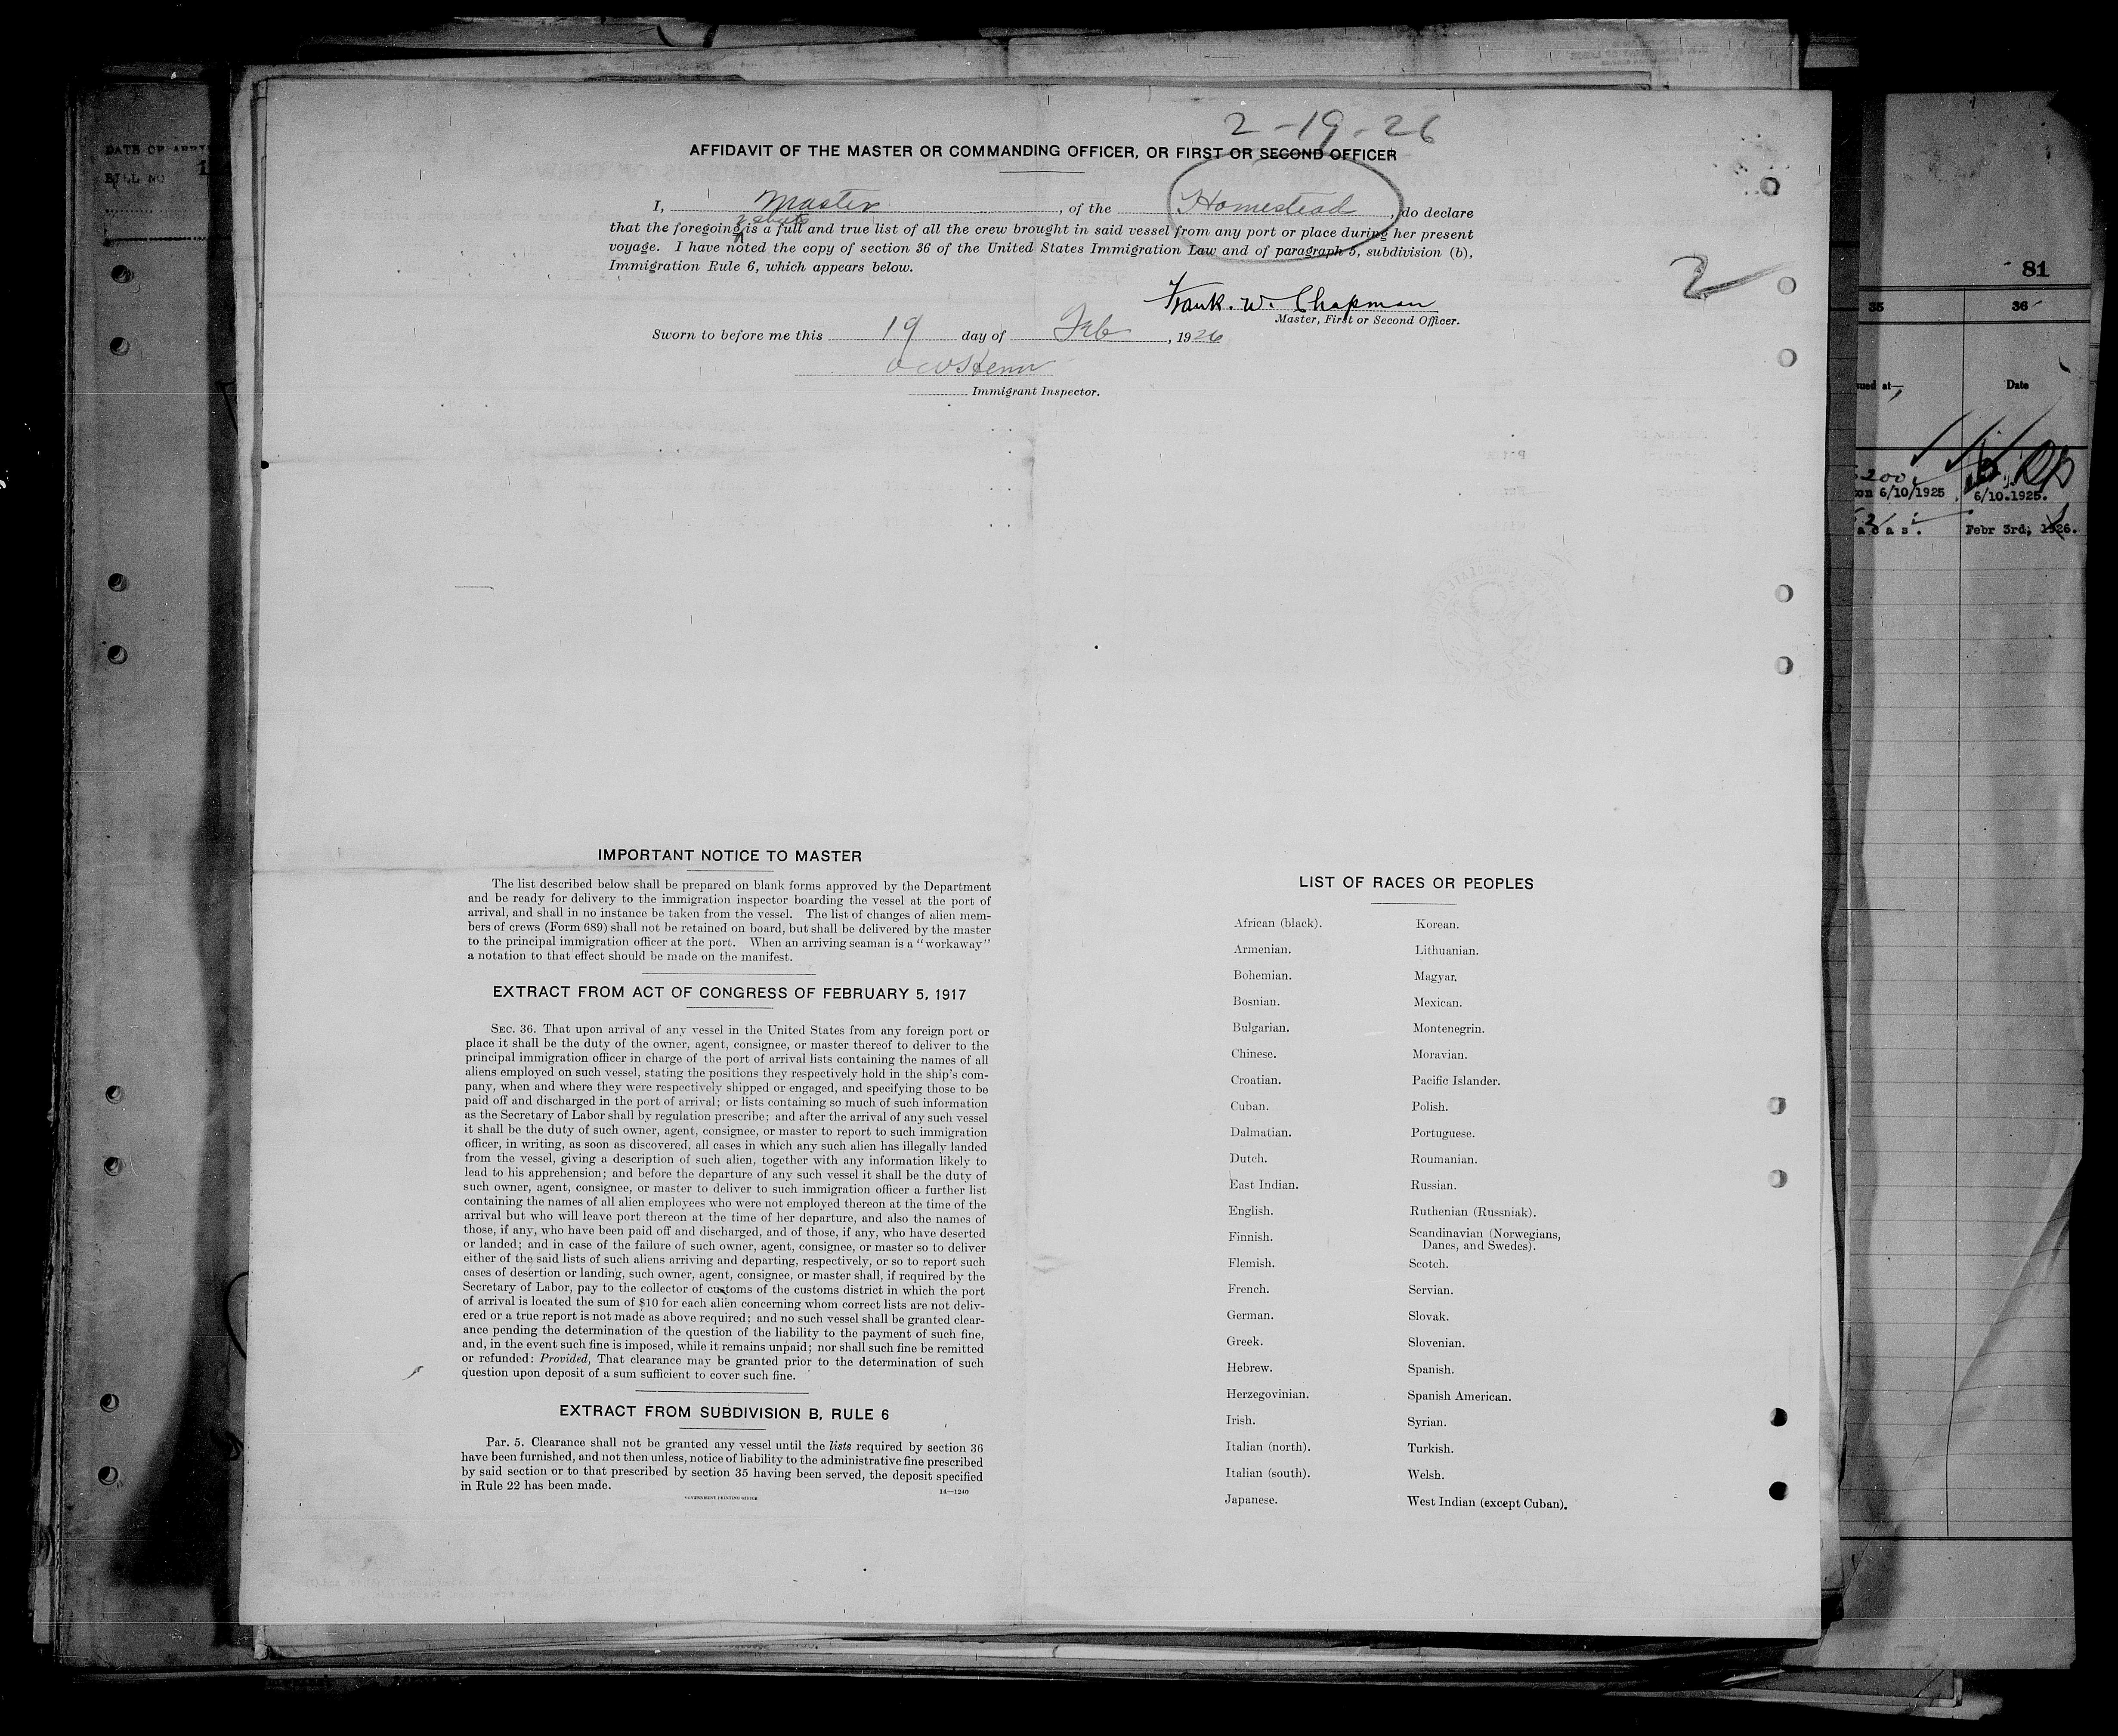 2-19-26
AFFIDAVIT OF THE MASTER OR COMMANDING OFFICER, OR FIRST OR SECOND OFFICER
I, Master, of the Homestead, do declare
2 sheets
that the foregoing is a full and true list of all the crew brought in said vessel from any port or place during her present
voyage. I have noted the copy of section 36 of the United States Immigration Law and of paragraph 5, subdivision (b),
Immigration Rule 6, which appears below.
2
Frank. W. Chapman
Master, First or Second Officer.
Sworn to before me this 19 day of Feb, 1926
Immigrant Inspector.
IMPORTANT NOTICE TO MASTER
The list described below shall be prepared on blank forms approved by the Department
and be ready for delivery to the immigration inspector boarding the vessel at the port of
arrival, and shall in no instance be taken from the vessel. The list of changes of alien mem-
bers of crews (Form 689) shall not be retained on board, but shall be delivered by the master
to the principal immigration officer at the port. When an arriving seaman is a "workaway"
a notation to that effect should be made on the manifest.
EXTRACT FROM ACT OF CONGRESS OF FEBRUARY 5, 1917
SEC. 36. That upon arrival of any vessel in the United States from any foreign port or
place it shall be the duty of the owner, agent, consignee, or master thereof to deliver to the
principal immigration officer in charge of the port of arrival lists containing the names of all
aliens employed on such vessel, stating the positions they respectively hold in the ship's com-
pany, when and where they were respectively shipped or engaged, and specifying those to be
paid off and discharged in the port of arrival; or lists containing so much of such information
as the Secretary of Labor shall by regulation prescribe; and after the arrival of any such vessel
it shall be the duty of such owner, agent, consignee, or master to report to such immigration
officer, in writing, as soon as discovered, all cases in which any such alien has illegally landed
from the vessel, giving a description of such alien, together with any information likely to
lead to his apprehension; and before the departure of any such vessel it shall be the duty of
such owner, agent, consignee, or master to deliver to such immigration officer a further list
containing the names of all alien employees who were not employed thereon at the time of the
arrival but who will leave port thereon at the time of her departure, and also the names of
those, if any, who have been paid off and discharged, and of those, if any, who have deserted
or landed; and in case of the failure of such owner, agent, consignee, or master so to deliver
either of the said lists of such aliens arriving and departing, respectively, or so to report such
cases of desertion or landing, such owner, agent, consignee, or master shall, if required by the
Secretary of Labor, pay to the collector of customs of the customs district in which the port
of arrival is located the sum of $10 for each alien concerning whom correct lists are not deliv-
ered or a true report is not made as above required; and no such vessel shall be granted clear-
ance pending the determination of the question of the liability to the payment of such fine,
and, in the event such fine is imposed, while it remains unpaid; nor shall such fine be remitted
or refunded: Provided, That clearance may be granted prior to the determination of such
question upon deposit of a sum sufficient to cover such fine.
EXTRACT FROM SUBDIVISION B, RULE 6
Par. 5. Clearance shall not be granted any vessel until the lists required by section 36
have been furnished, and not then unless, notice of liability to the administrative fine prescribed
by said section or to that prescribed by section 35 having been served, the deposit specified
in Rule 22 has been made.
14—1240
GOVERNMENT PRINTING OFFICE
LIST OF RACES OR PEOPLES
African (black). Korean.
Armenian. Lithuanian.
Bohemian. Magyar.
Bosnian. Mexican.
Bulgarian. Montenegrin.
Chinese. Moravian.
Croatian. Pacific Islander.
Cuban. Polish.
Dalmatian. Portuguese.
Dutch. Roumanian.
East Indian. Russian.
English. Ruthenian (Russniak).
Finnish. Scandinavian (Norwegians,
Danes, and Swedes).
Flemish. Scotch.
French. Servian.
German. Slovak.
Greek. Slovenian.
Hebrew. Spanish.
Herzegovinian. Spanish American.
Irish. Syrian.
Italian (north). Turkish.
Italian (south). Welsh.
Japanese. West Indian (except Cuban).
DATE OF
BILL NO
81
35 36
at— Date
200
on 6/10/1925 6/10.1925.
Febr 3rd, 1926.